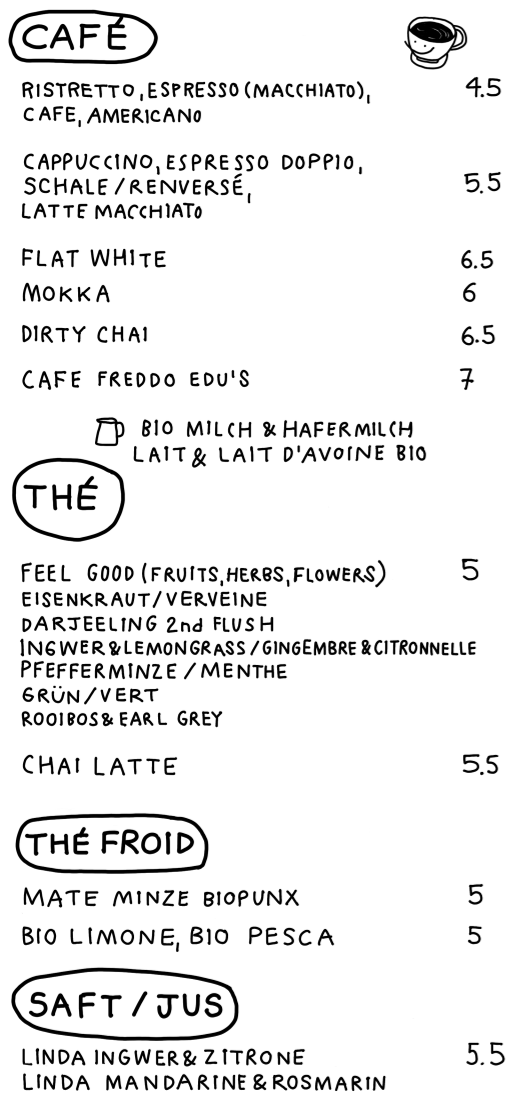 CAFÉ
RISTRETTO, ESPRESSO (MACCHIATO), 4.5
CAFE, AMERICANO
CAPPUCCINO, ESPRESSO DOPPIO,
SCHALE / RENVERSÉ, 5.5
LATTE MACCHIATO
FLAT WHITE 6.5
MOKKA 6
DIRTY CHAI 6.5
CAFE FREDDO EDU'S 7
BIO MILCH & HAFERMILCH
LAIT & LAIT D'AVOINE BIO
THÉ
FEEL GOOD (FRUITS, HERBS, FLOWERS) 5
EISENKRAUT / VERVEINE
DARJEELING 2nd FLUSH
INGWER & LEMONGRASS / GINGEMBRE & CITRONNELLE
PFEFFERMINZE / MENTHE
GRÜN / VERT
ROOIBOS & EARL GREY
CHAI LATTE 5.5
THÉ FROID
MATE MINZE BIOPUNX 5
BIO LIMONE, BIO PESCA 5
SAFT / JUS
LINDA INGWER & ZITRONE 5.5
LINDA MANDARINE & ROSMARIN